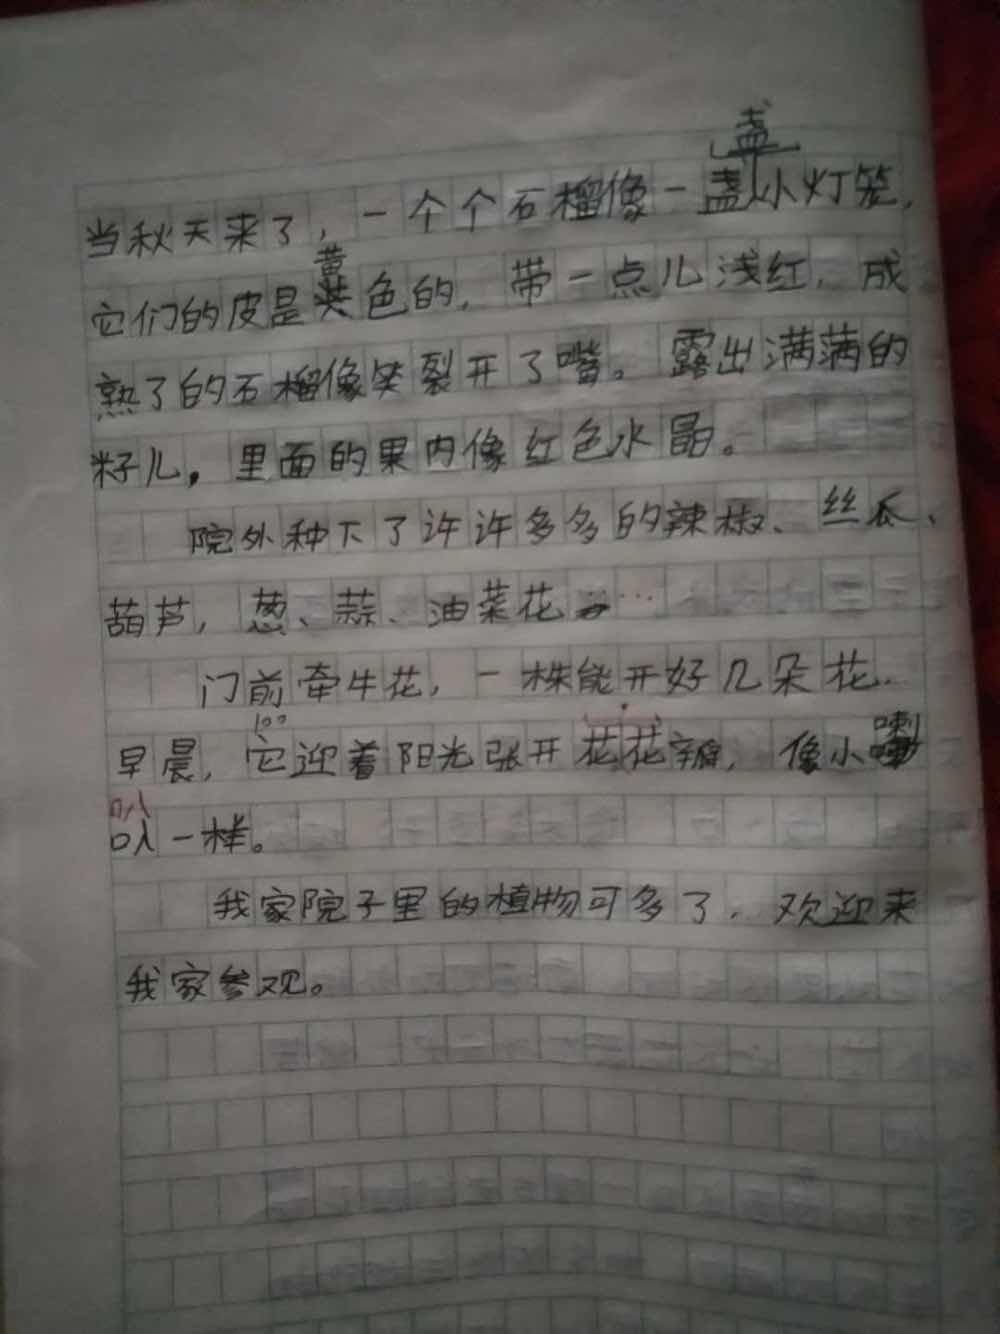 当秋天来了，一个个石榴像一盏小灯笼，
它们的皮是黄色的，带一点儿浅红，成
熟了的石榴像笑裂开了嘴。露出满满的
籽儿。里面的果肉像红色水晶。
院外种下了许许多多的辣椒、丝瓜、
葫芦，葱、蒜、油菜花……
门前牵牛花，一株能开好几朵花．
100
早晨，它迎着阳光张开花花瓣，像小喇
叭一样。
我家院子里的植物可多了．欢迎来
我家参观。